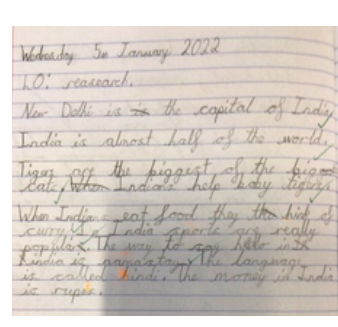 Wednesday 5th January 2022
LO: reasearch.
New Delhi is is the capital of India,
India is almost half of the world,
Tigers are the biggest of the big
cats, When Indians help baby tigers,
When Indians eat food they think of
curry, In India sports are really
popular, The way to say hello in
hindia is namastay, The language
is called hindi. The money in India
is rupee.